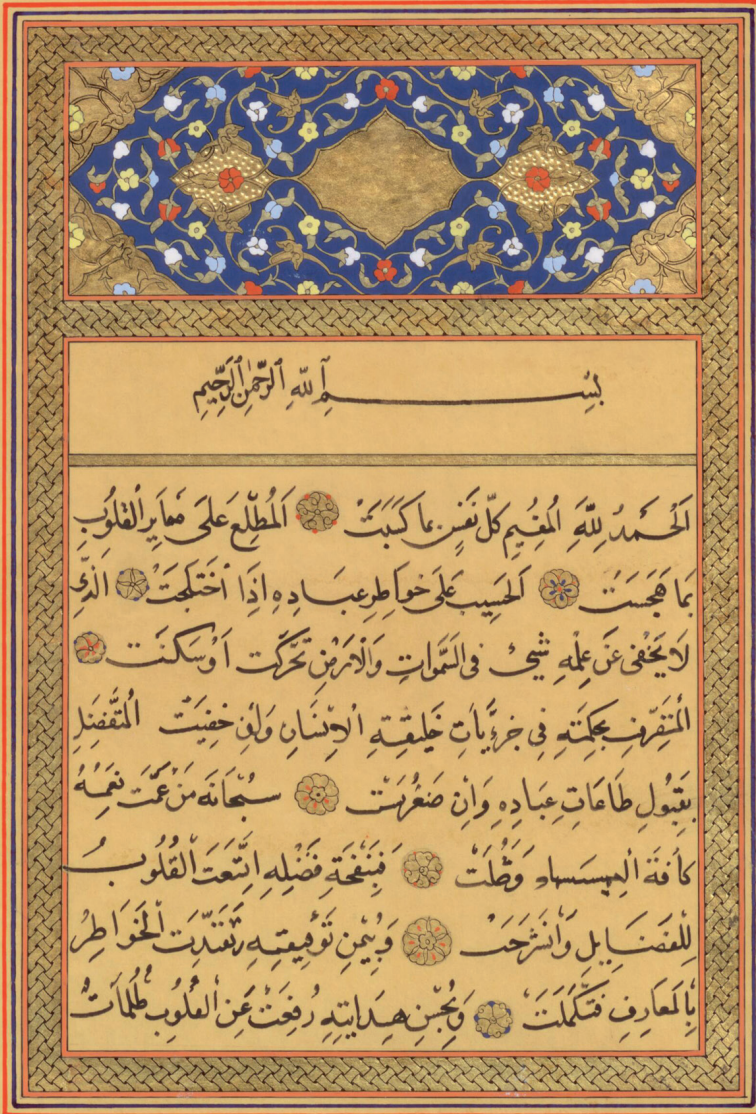 بِسْمِ ٱللّٰهِ ٱلرَّحْمٰنِ ٱلرَّحِيمِ
اَلْحَمْدُ لِلّٰهِ الْمُقِيمِ كُلَّ نَفْسٍ بِمَا كَسَبَتْ اَلْمُطَّلِعِ عَلَى مَعَايِرِ الْقُلُوبِ
بِمَا هَجَسَتْ اَلْحَسِيبِ عَلَى خَوَاطِرِ عِبَادِهِ اِذَا اخْتَلَجَتْ الَّذِى
لَا يَخْفٰى عَنْ عِلْمِهِ شَيْئٌ فِى السَّمٰوَاتِ وَالْاَرْضِ تَحَرَّكَتْ اَوْ سَكَنَتْ
بِحِكْمَتِهِ فِى جُزْئِيَّاتِ خَلِيقَتِهِ الْاِنْسَانِ وَاِنْ خَفِيَتْ الْمُتَفَضِّلِ
بِقَبُولِ طَاعَاتِ عِبَادِهِ وَاِنْ صَغُرَتْ سُبْحَانَهُ مَنْ عَمَّتْ نِعَمُهُ
كَافَّةَ فَبِنَفْحَةِ فَضْلِهِ اتَّسَعَتِ الْقُلُوبُ
لِلْفَضَايِلِ وَانْشَرَحَتْ وَبِيُمْنِ تَوْفِيقِهِ الْخَوَاطِرُ
بِالْمَعَارِفِ فَتَكَمَّلَتْ وَبِحُسْنِ هِدَايَتِهِ رُفِعَتْ عَنِ الْقُلُوبِ ظُلُمَاتُ